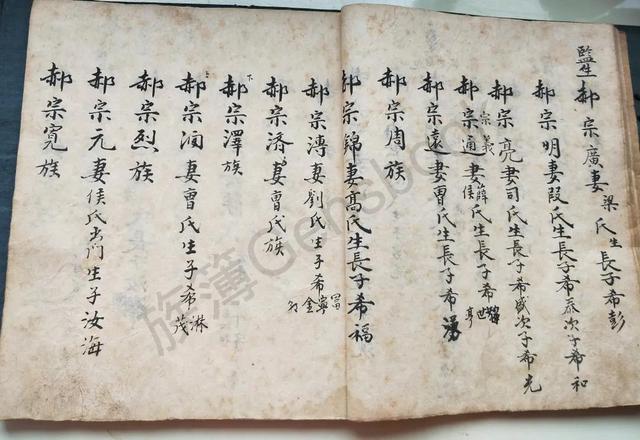 監生郝宗廣妻梁氏生長子希彭
郝宗明妻段氏生長子希泰次子希和
郝宗亮妻司氏生長子希盛次子希光
郝宗通妻薛氏侯氏生長子希
宗義
郝宗遠妻曹氏生長子希湯
郝宗周族
郝宗錦妻高氏生長子希福
郝宗溥妻劉氏生子希寧金
郝宗濟妻曹氏族
郝宗澤族
郝宗润妻曹氏生子希淋茂
郝宗烈族
郝宗元妻侯氏出门生子汝海
郝宗寬族
族簿Gensbook